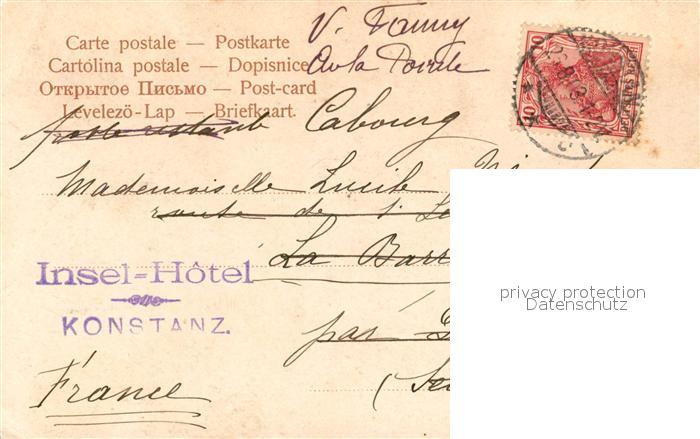 Carte postale — Postkarte
Cartolina postale — Dopisnice
Открытое Письмо — Post-card
Levelező-Lap — Briefkaart.
V. Fanny
poste restante Cabourg
Mademoiselle Lucile
route de
La Barr
Insel-Hôtel
KONSTANZ.
par
France
10
10
privacy protection
Datenschutz